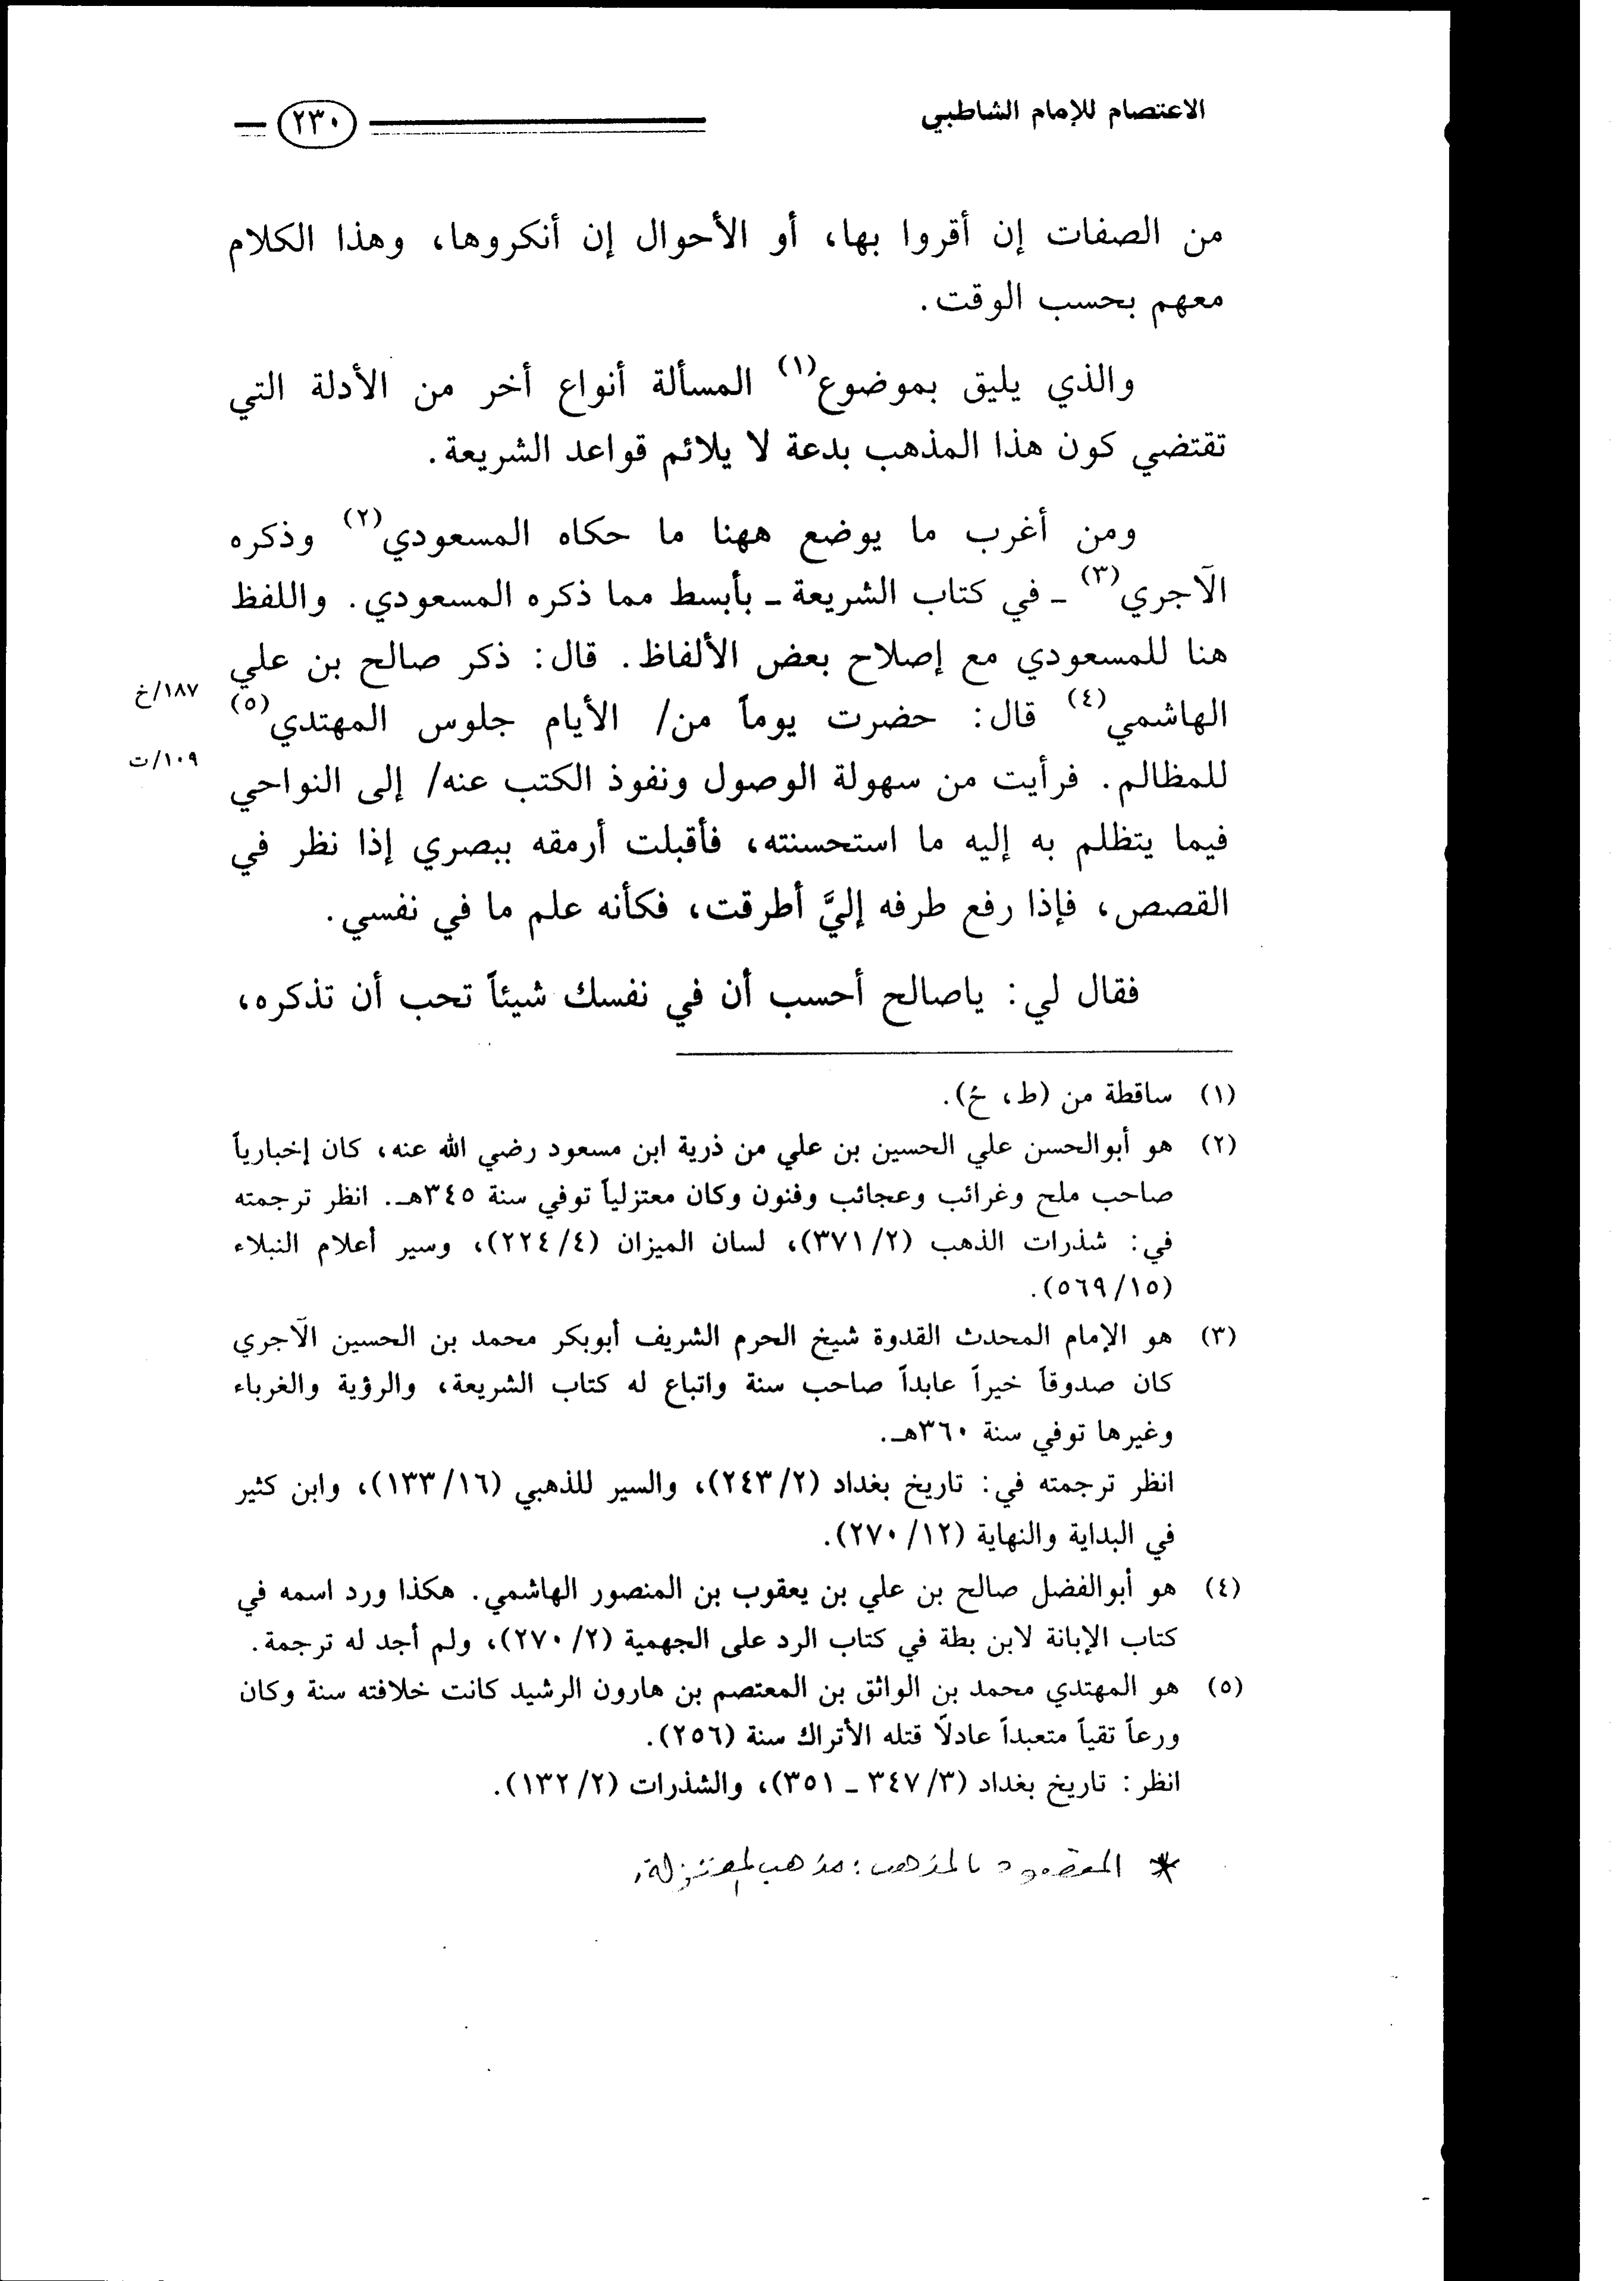 الاعتصام للإمام الشاطبي
٢٣٠
من الصفات إن أقروا بها، أو الأحوال إن أنكروها، وهذا الكلام
معهم بحسب الوقت.
والذي يليق بموضوع(١) المسألة أنواع أخر من الأدلة التي
تقتضي كون هذا المذهب بدعة لا يلائم قواعد الشريعة.
ومن أغرب ما يوضع ههنا ما حكاه المسعودي(٢) وذكره
الآجري(٣) ـ في كتاب الشريعة ـ بأبسط مما ذكره المسعودي. واللفظ
هنا للمسعودي مع إصلاح بعض الألفاظ. قال: ذكر صالح بن علي
١٨٧/خ
الهاشمي(٤) قال: حضرت يوماً من/ الأيام جلوس المهتدي(٥)
١٠٩/ت
للمظالم. فرأيت من سهولة الوصول ونفوذ الكتب عنه/ إلى النواحي
فيما يتظلم به إليه ما استحسنته، فأقبلت أرمقه ببصري إذا نظر في
القصص، فإذا رفع طرفه إليَّ أطرقت، فكأنه علم ما في نفسي.
فقال لي: ياصالح أحسب أن في نفسك شيئاً تحب أن تذكره،
(١) ساقطة من (ط، خ).
(٢) هو أبوالحسن علي الحسين بن علي من ذرية ابن مسعود رضي الله عنه، كان إخبارياً
صاحب ملح وغرائب وعجائب وفنون وكان معتزلياً توفي سنة ٣٤٥هـ. انظر ترجمته
في: شذرات الذهب (٣٧١/٢)، لسان الميزان (٢٢٤/٤)، وسير أعلام النبلاء
(٥٦٩/١٥).
(٣) هو الإمام المحدث القدوة شيخ الحرم الشريف أبوبكر محمد بن الحسين الآجري
كان صدوقاً خيراً عابداً صاحب سنة واتباع له كتاب الشريعة، والرؤية والغرباء
وغيرها توفي سنة ٣٦٠هـ.
انظر ترجمته في: تاريخ بغداد (٢٤٣/٢)، والسير للذهبي (١٣٣/١٦)، وابن كثير
في البداية والنهاية (٢٧٠/١٢).
(٤) هو أبوالفضل صالح بن علي بن يعقوب بن المنصور الهاشمي. هكذا ورد اسمه في
كتاب الإبانة لابن بطة في كتاب الرد على الجهمية (٢٧٠/٢)، ولم أجد له ترجمة.
(٥) هو المهتدي محمد بن الواثق بن المعتصم بن هارون الرشيد كانت خلافته سنة وكان
ورعاً تقياً متعبداً عادلاً قتله الأتراك سنة (٢٥٦).
انظر: تاريخ بغداد (٣٤٧/٣ ـ ٣٥١)، والشذرات (١٣٢/٢).
* المقصود بالمذهب: مذهب المعتزلة.